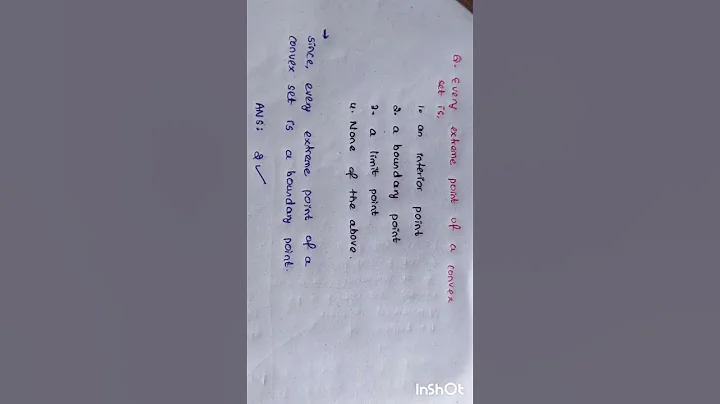 Q. Every extreme point of a convex
set is,
1. an interior point
2. a boundary point
3. a limit point
4. None of the above.
→
since, every extreme point of a
convex set is a boundary point.
ANS: 2 ✓
InShOt